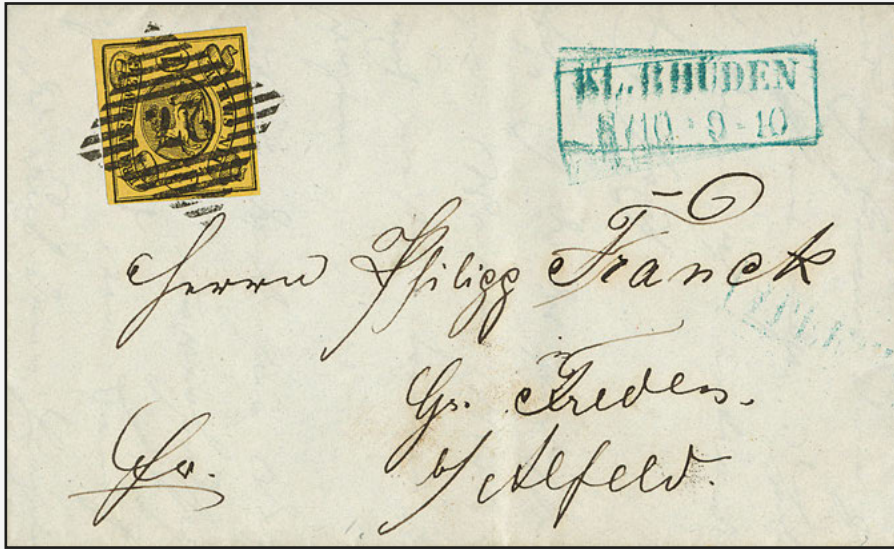 KL. RHÜDEN
8/10 · 9-10
Herrn Philipp Franck
Gr. Freden.
b/ Alfeld.
Fr.